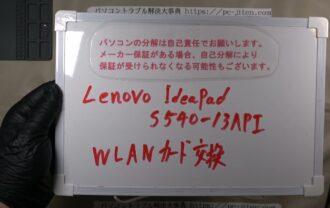 パソコントラブル解決大事典 https://pc-jiten.com
パソコンの分解は自己責任でお願いします。
メーカー保証がある場合、自己分解により
保証が受けられなくなる可能性もございます。
Lenovo IdeaPad
S540-13API
WLANカード交換
パソコントラブル解決大事典 https://pc-jiten.com